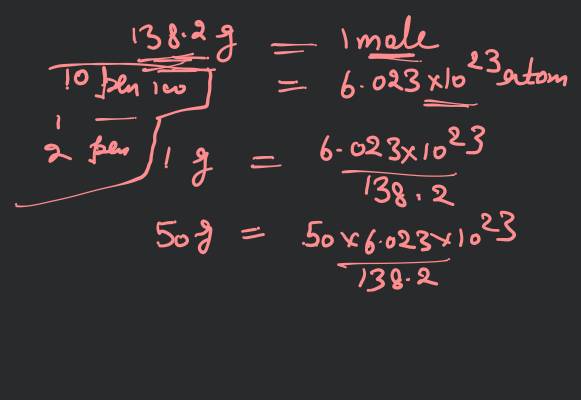 138.2 g = 1 mole
10 pen 100 = 6.023 x 10^23 atom
1 —
2 pen
1 g = 6.023x10^23 / 138.2
50g = 50 x 6.023 x 10^23 / 138.2